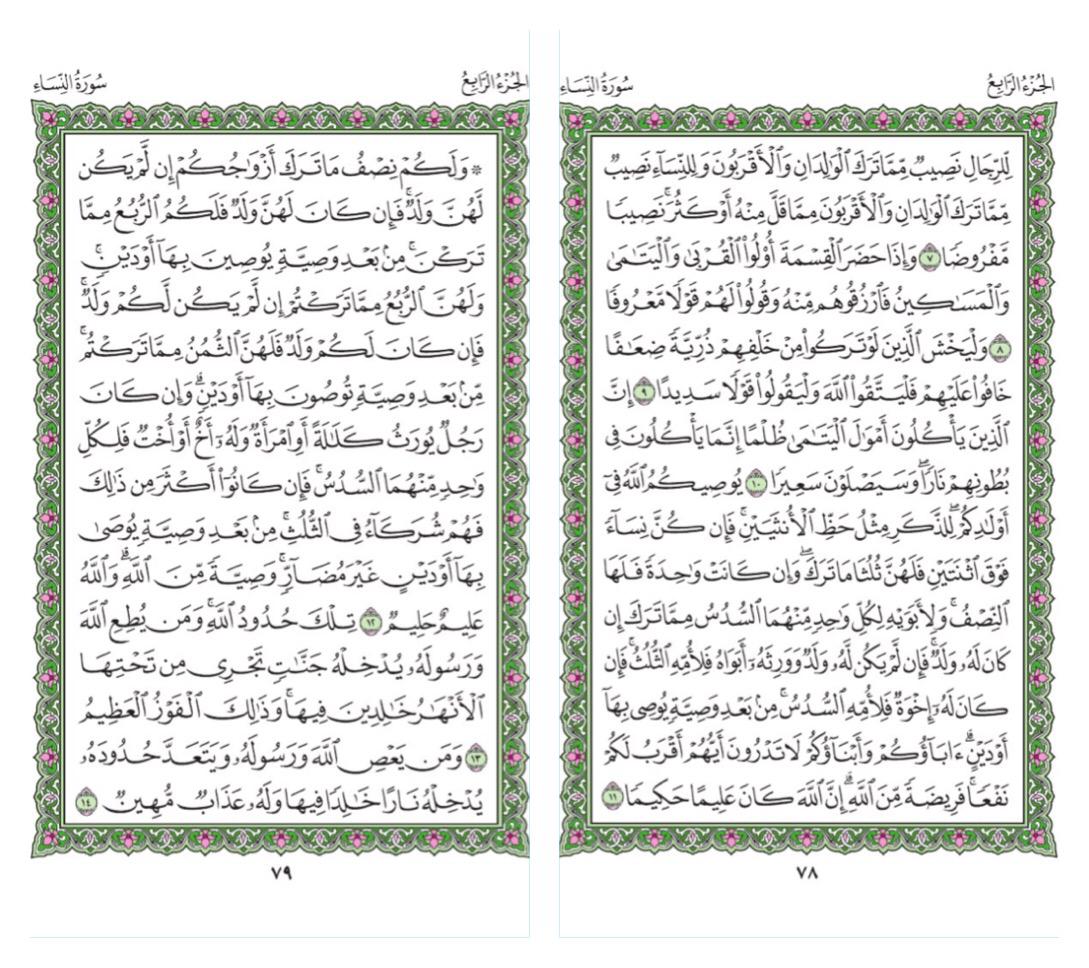 الجُزْءُ الرَّابِعُ
سُورَةُ النِّسَاءِ
لِّلرِّجَالِ نَصِيبٞ مِّمَّا تَرَكَ ٱلۡوَٰلِدَانِ وَٱلۡأَقۡرَبُونَ وَلِلنِّسَآءِ نَصِيبٞ
مِّمَّا تَرَكَ ٱلۡوَٰلِدَانِ وَٱلۡأَقۡرَبُونَ مِمَّا قَلَّ مِنۡهُ أَوۡ كَثُرَۚ نَصِيبٗا
مَّفۡرُوضٗا ٧ وَإِذَا حَضَرَ ٱلۡقِسۡمَةَ أُوْلُواْ ٱلۡقُرۡبَىٰ وَٱلۡيَتَٰمَىٰ
وَٱلۡمَسَٰكِينُ فَٱرۡزُقُوهُم مِّنۡهُ وَقُولُواْ لَهُمۡ قَوۡلٗا مَّعۡرُوفٗا
٨ وَلۡيَخۡشَ ٱلَّذِينَ لَوۡ تَرَكُواْ مِنۡ خَلۡفِهِمۡ ذُرِّيَّةٗ ضِعَٰفًا
خَافُواْ عَلَيۡهِمۡ فَلۡيَتَّقُواْ ٱللَّهَ وَلۡيَقُولُواْ قَوۡلٗا سَدِيدًا ٩ إِنَّ
ٱلَّذِينَ يَأۡكُلُونَ أَمۡوَٰلَ ٱلۡيَتَٰمَىٰ ظُلۡمًا إِنَّمَا يَأۡكُلُونَ فِي
بُطُونِهِمۡ نَارٗاۖ وَسَيَصۡلَوۡنَ سَعِيرٗا ١٠ يُوصِيكُمُ ٱللَّهُ فِيٓ
أَوۡلَٰدِكُمۡۖ لِلذَّكَرِ مِثۡلُ حَظِّ ٱلۡأُنثَيَيۡنِۚ فَإِن كُنَّ نِسَآءٗ
فَوۡقَ ٱثۡنَتَيۡنِ فَلَهُنَّ ثُلُثَا مَا تَرَكَۖ وَإِن كَانَتۡ وَٰحِدَةٗ فَلَهَا
ٱلنِّصۡفُۚ وَلِأَبَوَيۡهِ لِكُلِّ وَٰحِدٖ مِّنۡهُمَا ٱلسُّدُسُ مِمَّا تَرَكَ إِن
كَانَ لَهُۥ وَلَدٞۚ فَإِن لَّمۡ يَكُن لَّهُۥ وَلَدٞ وَوَرِثَهُۥٓ أَبَوَاهُ فَلِأُمِّهِ ٱلثُّلُثُۚ فَإِن
كَانَ لَهُۥٓ إِخۡوَةٞ فَلِأُمِّهِ ٱلسُّدُسُۚ مِنۢ بَعۡدِ وَصِيَّةٖ يُوصِي بِهَآ
أَوۡ دَيۡنٍۗ ءَابَآؤُكُمۡ وَأَبۡنَآؤُكُمۡ لَا تَدۡرُونَ أَيُّهُمۡ أَقۡرَبُ لَكُمۡ
نَفۡعٗاۚ فَرِيضَةٗ مِّنَ ٱللَّهِۗ إِنَّ ٱللَّهَ كَانَ عَلِيمًا حَكِيمٗا ١١
٧٨
الجُزْءُ الرَّابِعُ
سُورَةُ النِّسَاءِ
۞ وَلَكُمۡ نِصۡفُ مَا تَرَكَ أَزۡوَٰجُكُمۡ إِن لَّمۡ يَكُن
لَّهُنَّ وَلَدٞۚ فَإِن كَانَ لَهُنَّ وَلَدٞ فَلَكُمُ ٱلرُّبُعُ مِمَّا
تَرَكۡنَۚ مِنۢ بَعۡدِ وَصِيَّةٖ يُوصِينَ بِهَآ أَوۡ دَيۡنٖۚ
وَلَهُنَّ ٱلرُّبُعُ مِمَّا تَرَكۡتُمۡ إِن لَّمۡ يَكُن لَّكُمۡ وَلَدٞۚ
فَإِن كَانَ لَكُمۡ وَلَدٞ فَلَهُنَّ ٱلثُّمُنُ مِمَّا تَرَكۡتُمۚ
مِّنۢ بَعۡدِ وَصِيَّةٖ تُوصُونَ بِهَآ أَوۡ دَيۡنٖۗ وَإِن كَانَ
رَجُلٞ يُورَثُ كَلَٰلَةً أَوِ ٱمۡرَأَةٞ وَلَهُۥٓ أَخٌ أَوۡ أُخۡتٞ فَلِكُلِّ
وَٰحِدٖ مِّنۡهُمَا ٱلسُّدُسُۚ فَإِن كَانُوٓاْ أَكۡثَرَ مِن ذَٰلِكَ
فَهُمۡ شُرَكَآءُ فِي ٱلثُّلُثِۚ مِنۢ بَعۡدِ وَصِيَّةٖ يُوصَىٰ
بِهَآ أَوۡ دَيۡنٍ غَيۡرَ مُضَآرّٖۚ وَصِيَّةٗ مِّنَ ٱللَّهِۗ وَٱللَّهُ
عَلِيمٌ حَلِيمٞ ١٢ تِلۡكَ حُدُودُ ٱللَّهِۚ وَمَن يُطِعِ ٱللَّهَ
وَرَسُولَهُۥ يُدۡخِلۡهُ جَنَّٰتٖ تَجۡرِي مِن تَحۡتِهَا
ٱلۡأَنۡهَٰرُ خَٰلِدِينَ فِيهَاۚ وَذَٰلِكَ ٱلۡفَوۡزُ ٱلۡعَظِيمُ
١٣ وَمَن يَعۡصِ ٱللَّهَ وَرَسُولَهُۥ وَيَتَعَدَّ حُدُودَهُۥ
يُدۡخِلۡهُ نَارًا خَٰلِدٗا فِيهَا وَلَهُۥ عَذَابٞ مُّهِينٞ ١٤
٧٩